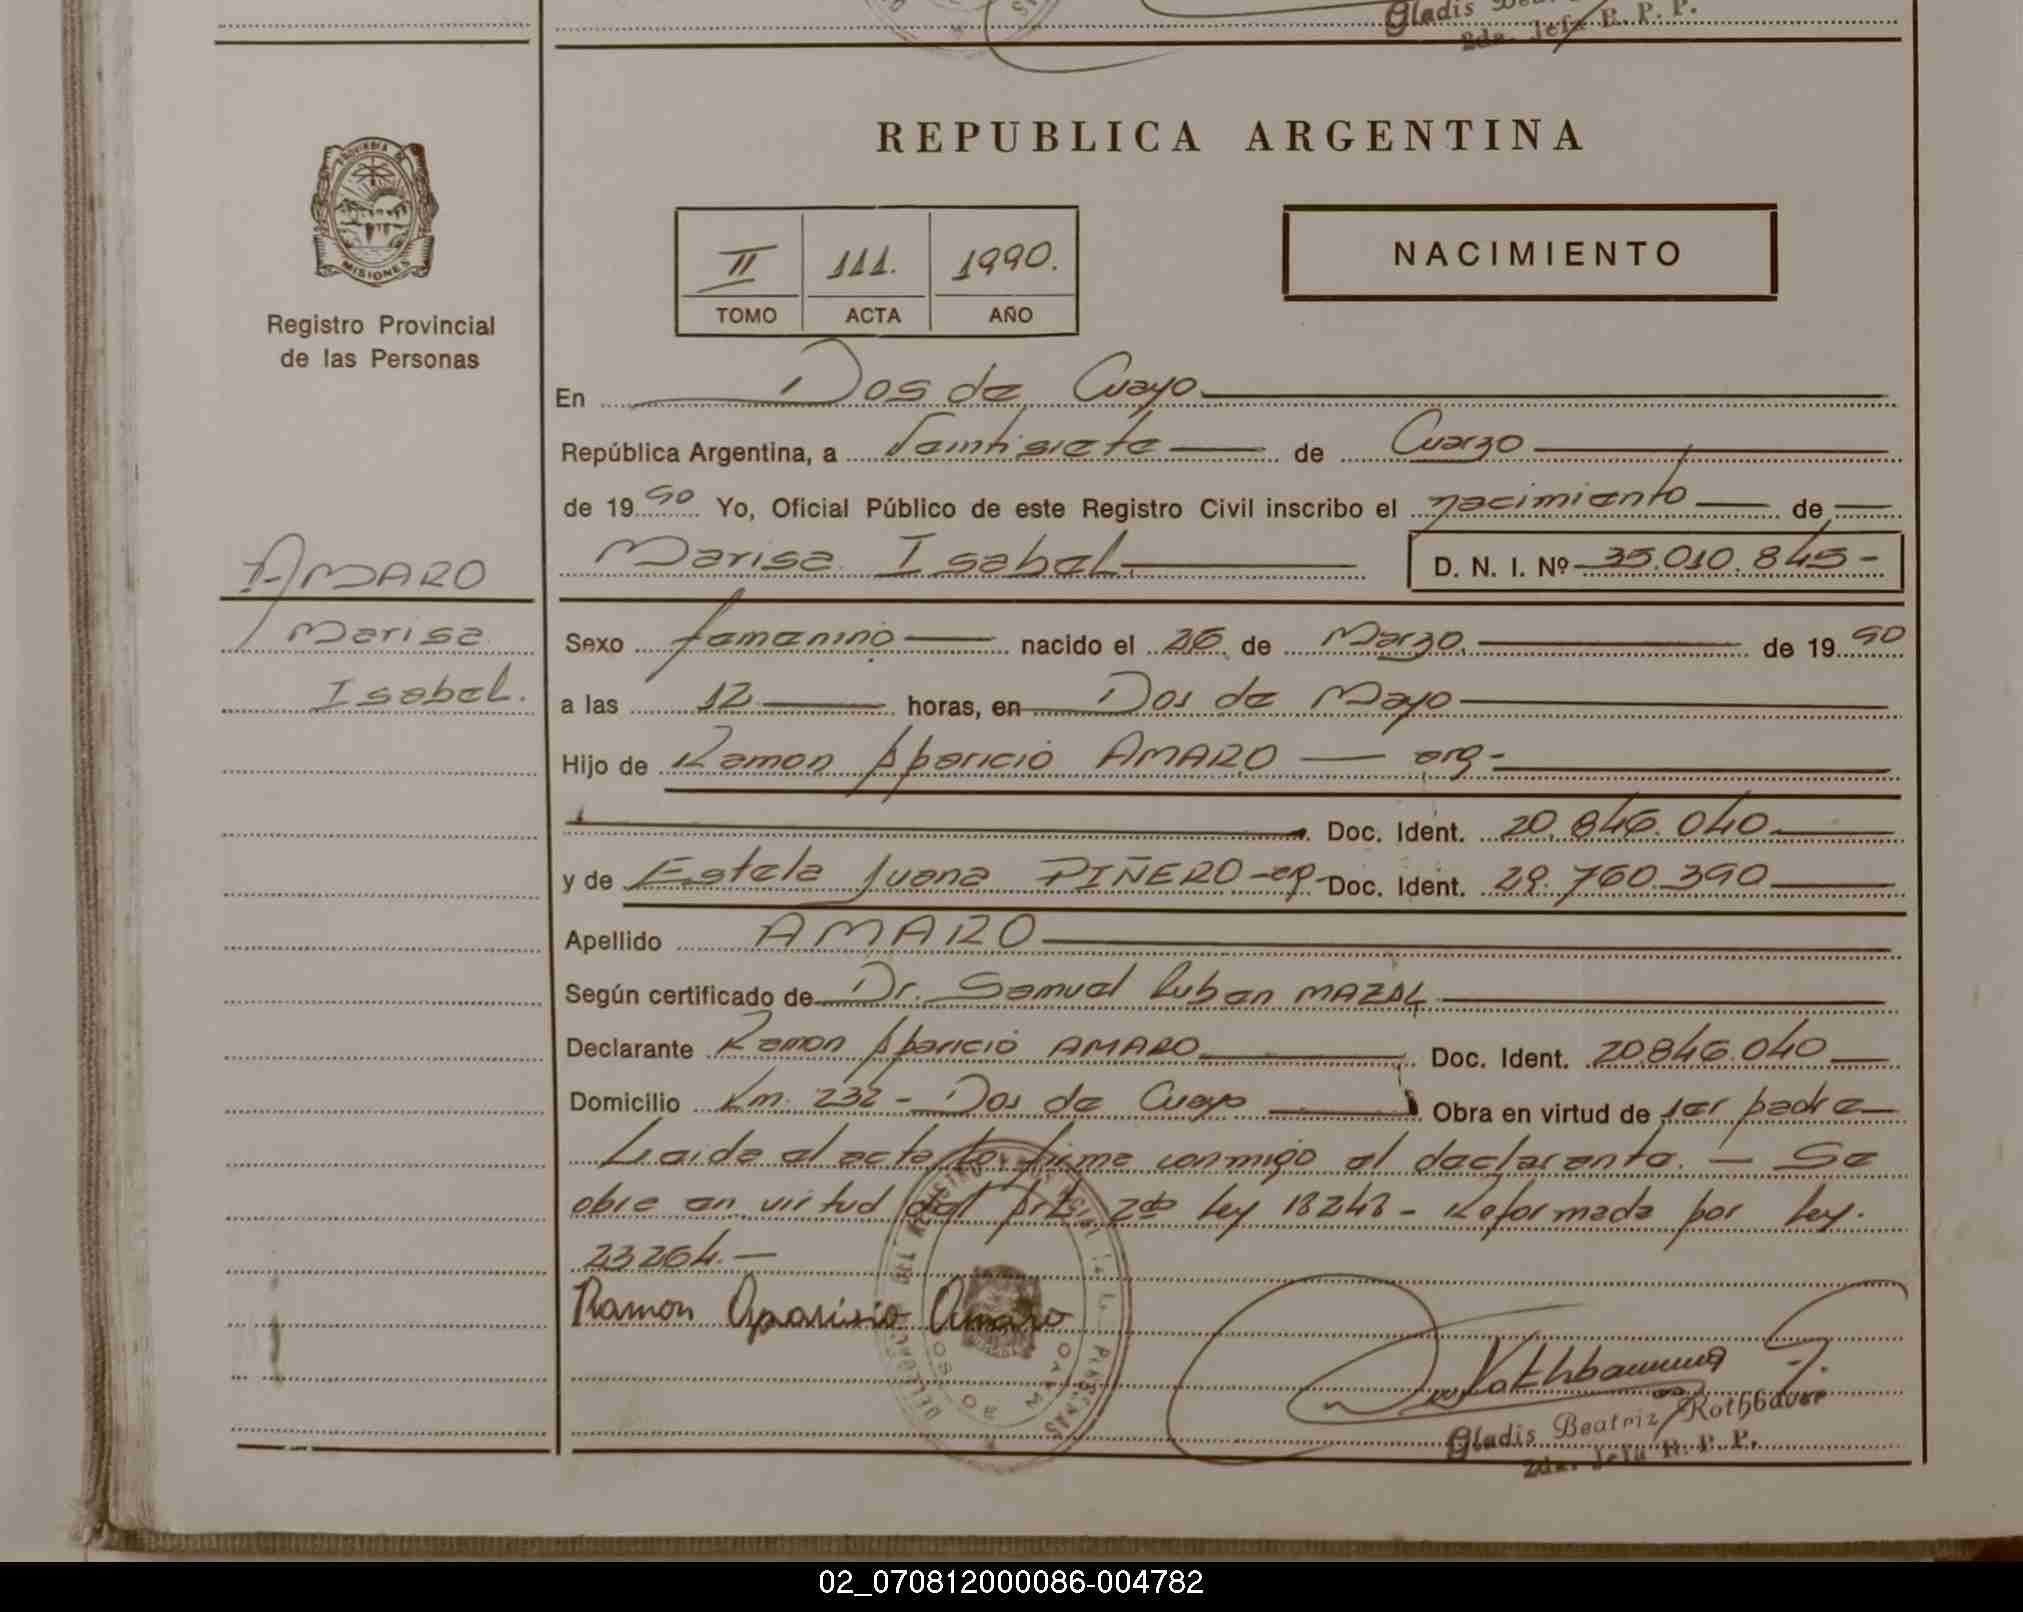 Gladis
2da. Jefa R. P. P.
REPUBLICA ARGENTINA
PROVINCIA DE
MISIONES
Registro Provincial
de las Personas
II 111. 1990.
TOMO ACTA AÑO
NACIMIENTO
En Dos de Cuayo
República Argentina, a Veintisiete de Cuarzo
de 1990 Yo, Oficial Público de este Registro Civil inscribo el nacimiento de
Marisa Isabel. D. N. I. Nº 35.010.845-
AMARO
Marisa
Isabel.
Sexo femenino nacido el 26 de Marzo. de 1990
a las 12 horas, en Dos de Mayo
Hijo de Ramon Aparicio AMARO — arg-
Doc. Ident. 20.846.040
y de Estela Juana PIÑERO - Doc. Ident. 29.760.390
Apellido AMARO
Según certificado de Dr. Samuel Ruben MAZAL
Declarante Ramon Aparicio AMARO Doc. Ident. 20846.040
Domicilio Km. 232 - Dos de Cuayo Obra en virtud de ser padre
Leida el acta la firma conmigo el declarante. — Se
obra en virtud del Art. 2do Ley 18248 - Reformada por Ley.
23264. —
Ramon Aparisio Amaro
DOS DE MAYO
Rothbauer G.
Gladis Beatriz Rothbauer
2da. Jefa R. P. P.
02_070812000086-004782